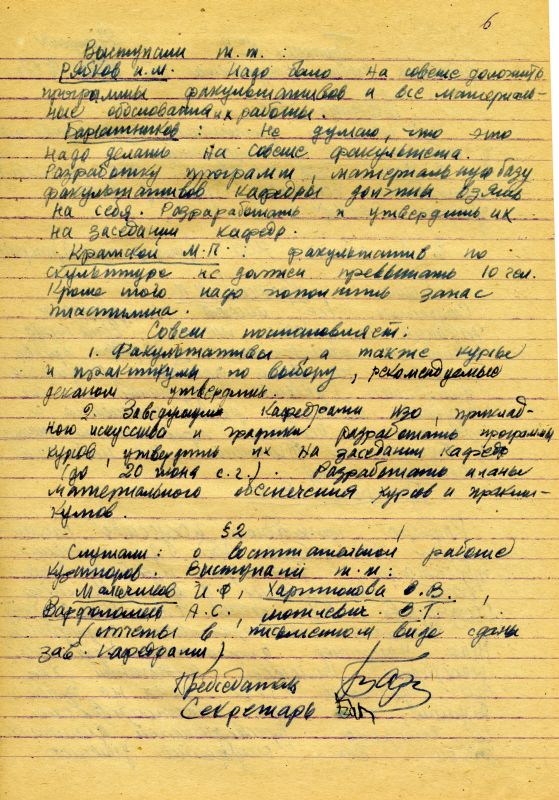 6
Выступали т.т. :
Рябков н.м. Надо было на совете доложить
программы факультативов и все материаль-
ные обоснования их работы.
Баршатников : Не думаю, что это
надо делать на совете факультета.
Разработку программ, материальную базу
факультативов кафедры должны взять
на себя. Разраработать и утвердить их
на заседании кафедр.
Крамской М.П. : факультатив по
скульптуре не должен превышать 10 чел.
Кроме того надо пополнить запас
пластилина.
Совет постановляет:
1. Факультативы, а также курсы
и практикумы по выбору, рекомендуемые
деканом утвердить.
2. Заведующим кафедрами изо, приклад-
ного искусства и графики разработать программы
курсов, утвердить их на заседании кафедр
(до 20 июня с.г.). Разработать планы
материального обеспечения курсов и практи-
кумов.
§2
Слушали: о воспитательной работе
кураторов. Выступали т.т:
И.Ф, Харитонова О.В.,
А.С.,
(отчеты в письменном виде сданы
зав. кафедрами)
Председатель
Секретарь